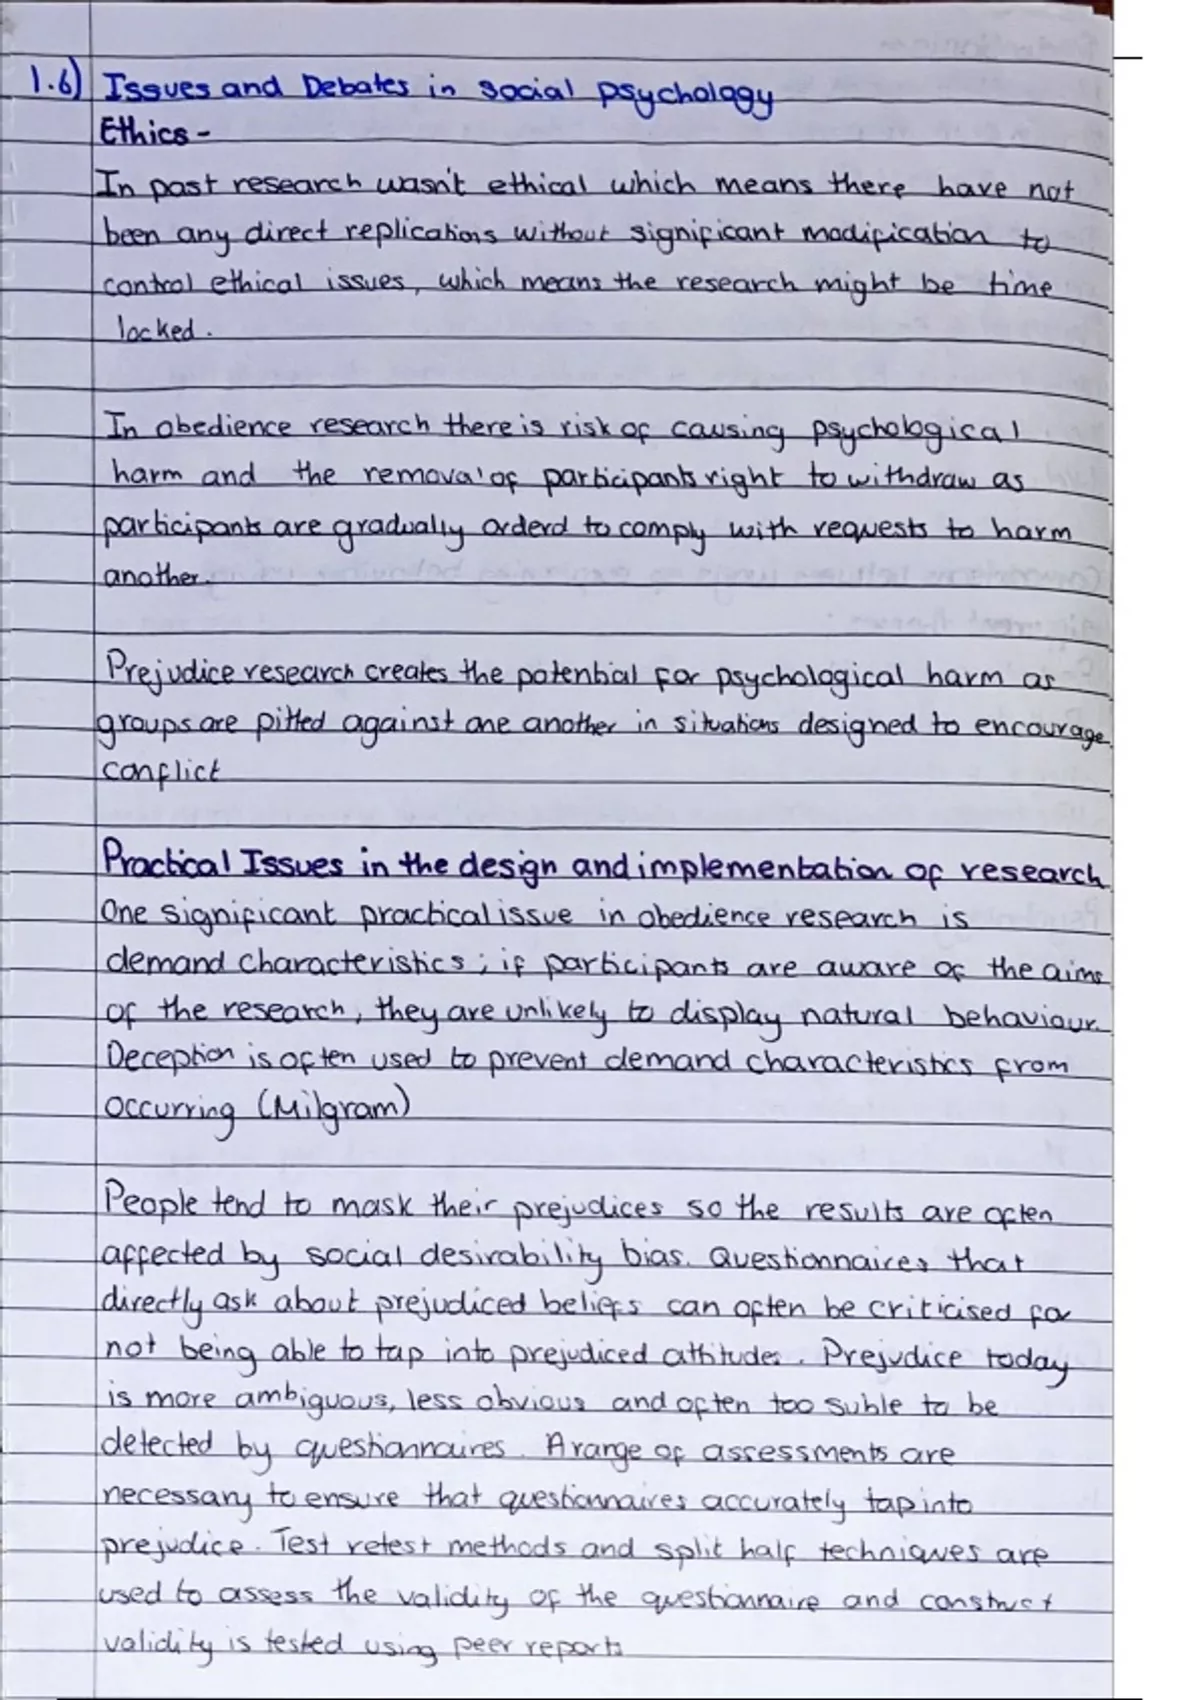 1.6) Issues and Debates in social psychology
Ethics -
In past research wasn't ethical which means there have not
been any direct replications without significant modification to
control ethical issues, which means the research might be time
locked.
In obedience research there is risk of causing psychological
harm and the removal of participants right to withdraw as
participants are gradually orderd to comply with requests to harm
another.
Prejudice research creates the potential for psychological harm as
groups are pitted against one another in situations designed to encourage
conflict
Practical Issues in the design and implementation of research
One significant practical issue in obedience research is
demand characteristics; if participants are aware of the aims
of the research, they are unlikely to display natural behaviour.
Deception is often used to prevent demand characteristics from
occurring (Milgram)
People tend to mask their prejudices so the results are often
affected by social desirability bias. Questionnaires that
directly ask about prejudiced beliefs can often be criticised for
not being able to tap into prejudiced attitudes. Prejudice today
is more ambiguous, less obvious and often too suble to be
detected by questionnaires. A range of assessments are
necessary to ensure that questionnaires accurately tap into
prejudice. Test retest methods and split half techniques are
used to assess the validity of the questionnaire and construct
validity is tested using peer reports